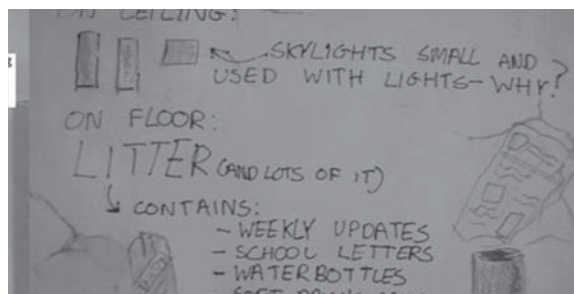 ON CEILING:
SKYLIGHTS SMALL AND
USED WITH LIGHTS-WHY?
ON FLOOR:
LITTER (AND LOTS OF IT)
CONTAINS:
- WEEKLY UPDATES
- SCHOOL LETTERS
- WATERBOTTLES